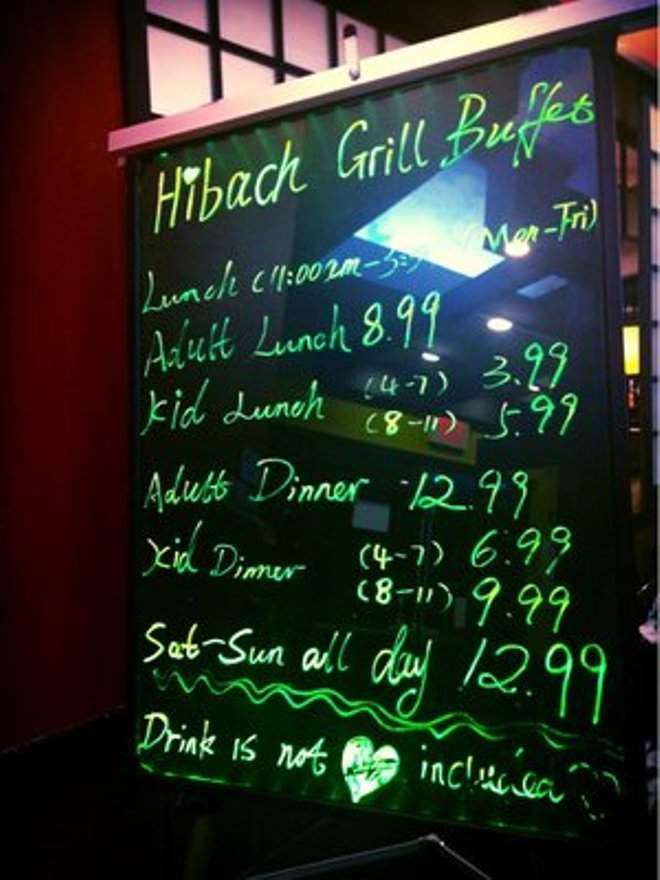 Hibach Grill Buffet
Lunch (11:00am-3:30 (Mon-Fri)
Adult Lunch 8.99
Kid Lunch (4-7) 3.99
(8-11) 5.99
Adult Dinner 12.99
Kid Dinner (4-7) 6.99
(8-11) 9.99
Sat-Sun all day 12.99
Drink is not included